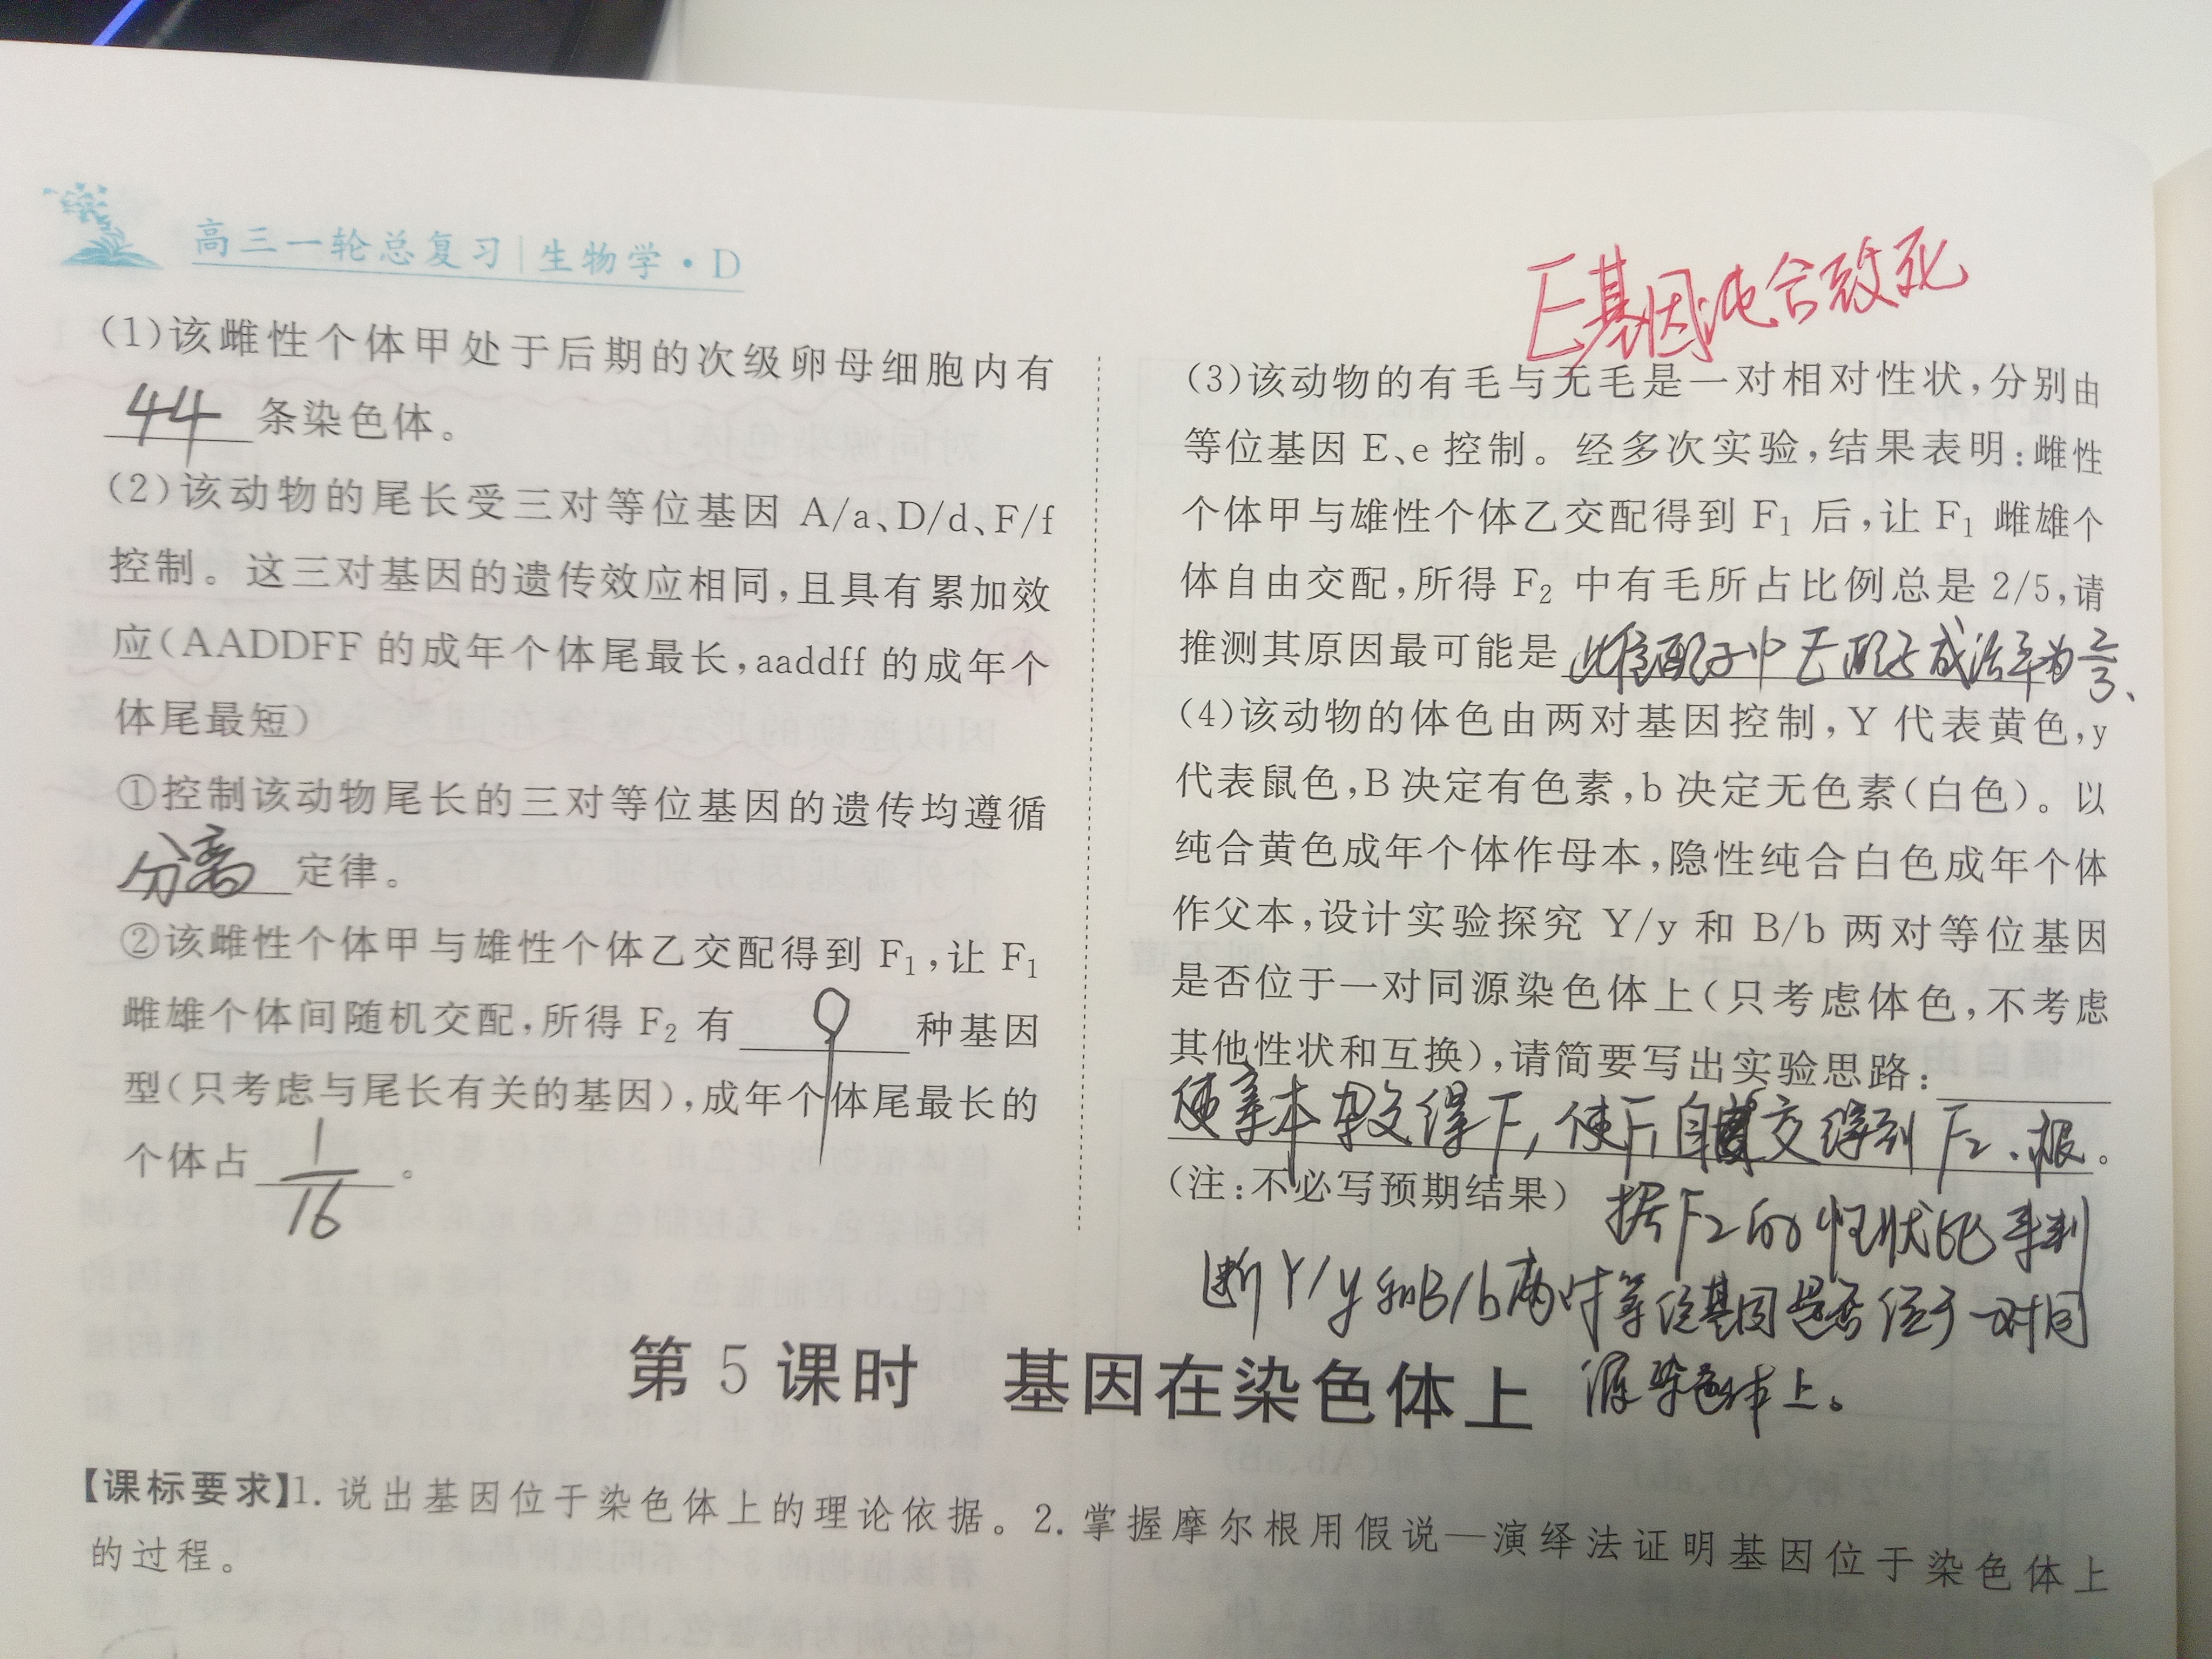 高三一轮总复习|生物学·D
E基因纯合致死
(1)该雌性个体甲处于后期的次级卵母细胞内有
44条染色体。
(2)该动物的尾长受三对等位基因 A/a、D/d、F/f
控制。这三对基因的遗传效应相同,且具有累加效
应(AADDFF 的成年个体尾最长,aaddff 的成年个
体尾最短)
①控制该动物尾长的三对等位基因的遗传均遵循
分离定律。
②该雌性个体甲与雄性个体乙交配得到 F₁,让 F₁
雌雄个体间随机交配,所得 F₂ 有 9 种基因
型(只考虑与尾长有关的基因),成年个体尾最长的
个体占 1/16。
(3)该动物的有毛与无毛是一对相对性状,分别由
等位基因 E、e 控制。经多次实验,结果表明:雌性
个体甲与雄性个体乙交配得到 F₁ 后,让 F₁ 雌雄个
体自由交配,所得 F₂ 中有毛所占比例总是 2/5,请
推测其原因最可能是 配子中E配子成活率为2/3、
(4)该动物的体色由两对基因控制,Y 代表黄色,y
代表鼠色,B 决定有色素,b 决定无色素(白色)。以
纯合黄色成年个体作母本,隐性纯合白色成年个体
作父本,设计实验探究 Y/y 和 B/b 两对等位基因
是否位于一对同源染色体上(只考虑体色,不考虑
其他性状和互换),请简要写出实验思路:
使亲本杂交得F₁,使F₁自交得到F₂,根。
(注:不必写预期结果)
据F₂的性状比来判
断Y/y和B/b两对等位基因是否位于一对同
源染色体上。
第 5 课时 基因在染色体上
【课标要求】1. 说出基因位于染色体上的理论依据。2. 掌握摩尔根用假说—演绎法证明基因位于染色体上
的过程。